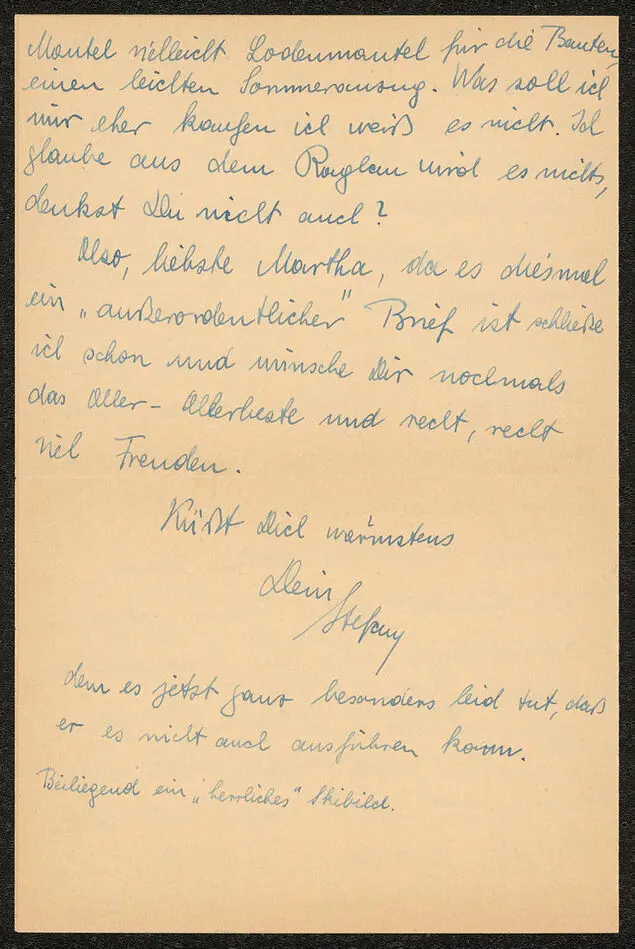 Mantel vielleicht Lodenmantel für die Bauten,
einen leichten Sommeranzug. Was soll ich
mir eher kaufen ich weiß es nicht. Ich
glaube aus dem Raglan wird es nichts,
denkst Du nicht auch?
Also, liebste Martha, da es diesmal
ein „außerordentlicher" Brief ist schließe
ich schon und wünsche Dir nochmals
das Aller - Allerbeste und recht, recht
viel Freuden.
Küßt Dich wärmstens
Dein
Stefan
dem es jetzt ganz besonders leid tut, daß
er es nicht auch ausführen kann.
Beiliegend ein „herrliches" Skibild.